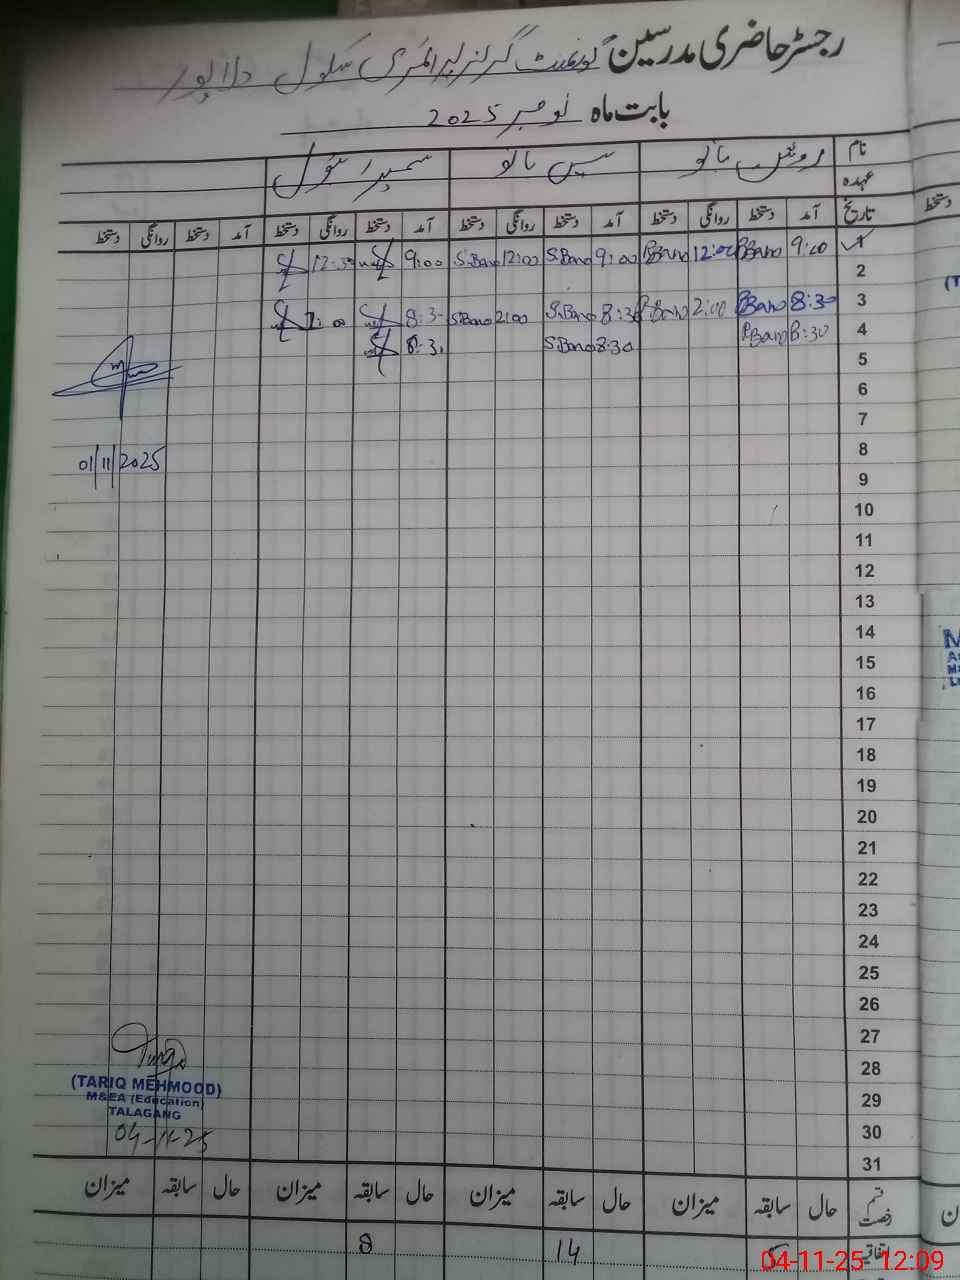 رجسٹر حاضری مدرسین گورنمنٹ گرلز پرائمری سکول
بابت ماہ نومبر 2025
نام بانو بانو
عہدہ
تاریخ آمد دستخط روانگی دستخط آمد دستخط روانگی دستخط آمد دستخط روانگی دستخط آمد دستخط روانگی دستخط
1 9:00 PBano 12:00 PBano 9:00 S.Bano 12:00 S.Bano 9:00 12:30
2
3 8:30 PBano 2:00 PBano 8:30 S.Bano 2:00 S.Bano 8:30
4 8:30 PBano 8:30 S.Bano 8:30
5
6
7
8
01/11/2025
9
10
11
12
13
14
15
16
17
18
19
20
21
22
23
24
25
26
27
28
29
30
31
(TARIQ MEHMOOD)
M&EA (Education)
TALAGANG
04-11-25
قسم رخصت حال سابقہ میزان حال سابقہ میزان حال سابقہ میزان حال سابقہ میزان
اتفاقیہ 14 8
04-11-25 12:09